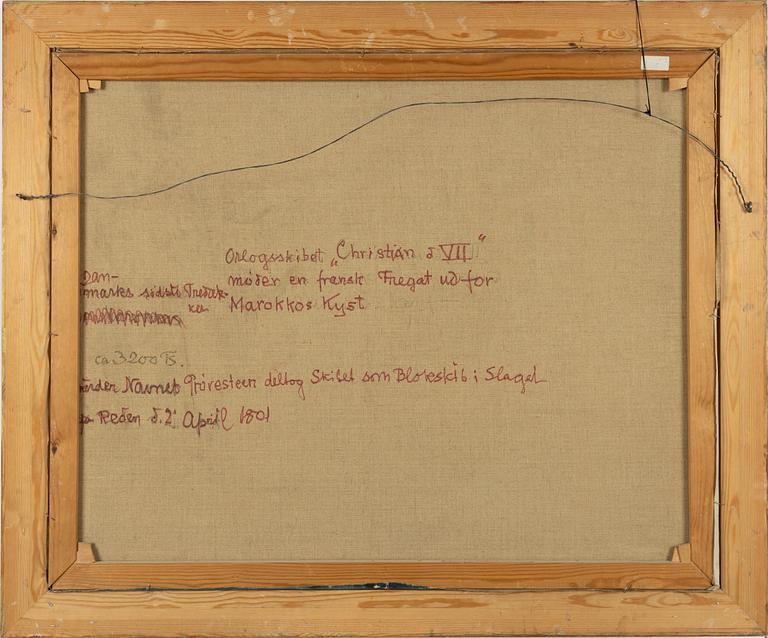 Orlogsskibet „Christian d VII"
møder en fransk Fregat ud for
Marokkos Kyst
Dan-
marks sidste Tredæk-
ker
ca 3200 Ts.
under Navnet Prövesteen deltog Skibet som Blokskib i Slaget
paa Reden d. 2' April 1801